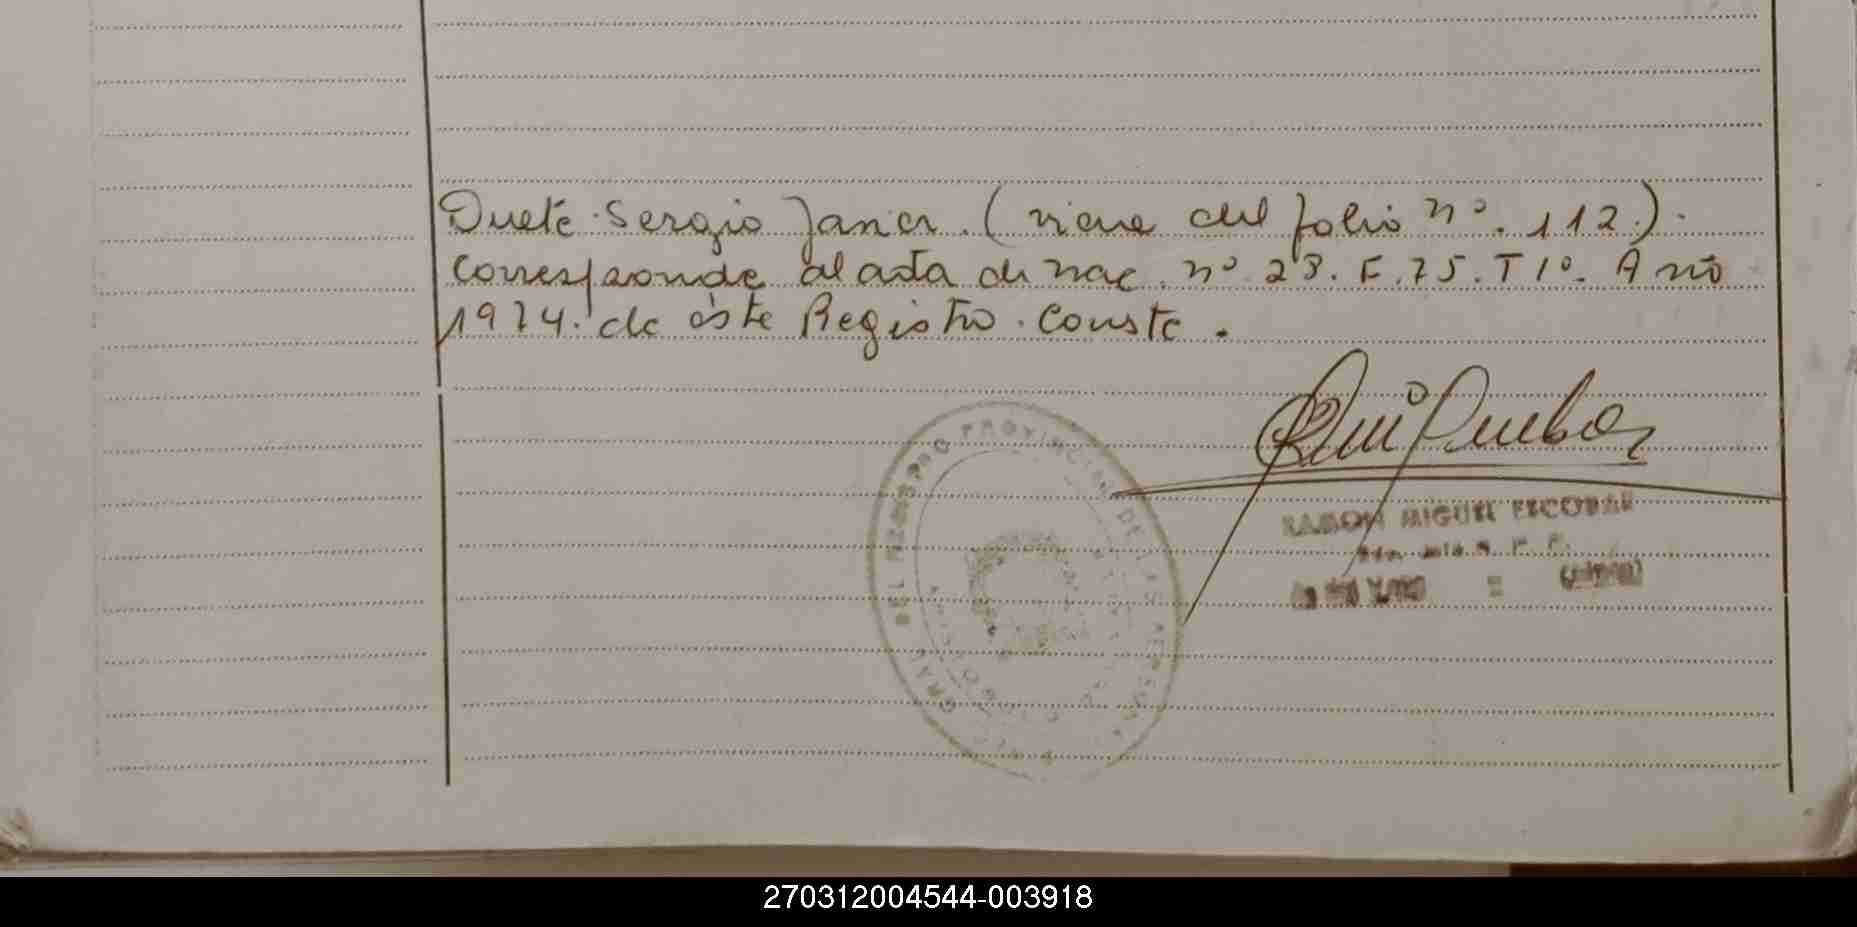 Duete Sergio Javier. (viene del folio nº. 112).
Corresponde al acta de nac. nº 28. F. 75. T 1º. Año
1974. de éste Registro. Conste.
DEL REGISTRO PROVINCIAL DE LAS PERSONAS
RAMON MIGUEL ESCOBAR
270312004544-003918